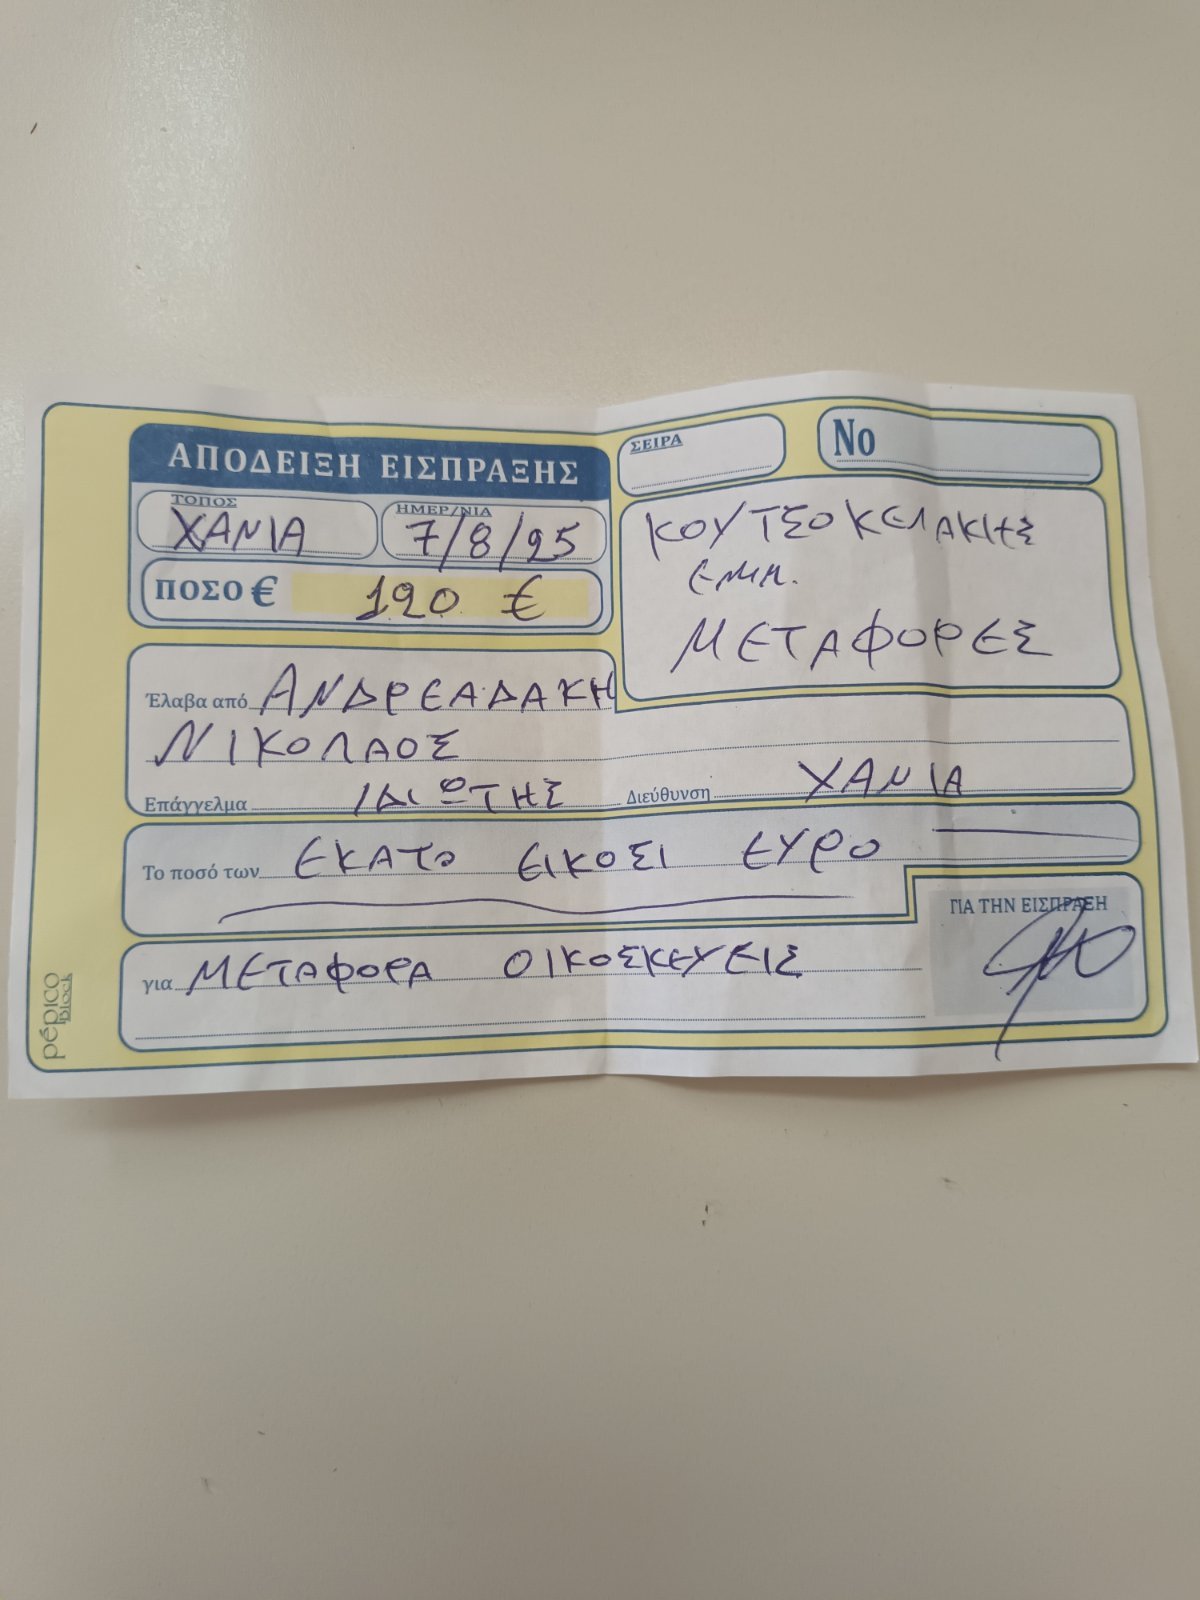 ΑΠΟΔΕΙΞΗ ΕΙΣΠΡΑΞΗΣ
ΣΕΙΡΑ
Νο
ΤΟΠΟΣ
ΧΑΝΙΑ
ΗΜΕΡ/ΝΙΑ
7/8/25
ΠΟΣΟ € 120 €
ΚΟΥΤΣΟΚΕΛΑΚΗΣ
ΕΜΜ.
ΜΕΤΑΦΟΡΕΣ
Έλαβα από ΑΝΔΡΕΑΔΑΚΗ
ΝΙΚΟΛΑΟΣ
Επάγγελμα ΙΔΙΩΤΗΣ Διεύθυνση ΧΑΝΙΑ
Το ποσό των ΕΚΑΤΟ ΕΙΚΟΣΙ ΕΥΡΟ
ΓΙΑ ΤΗΝ ΕΙΣΠΡΑΞΗ
για ΜΕΤΑΦΟΡΑ ΟΙΚΟΣΚΕΥΕΙΣ
pépico
Block